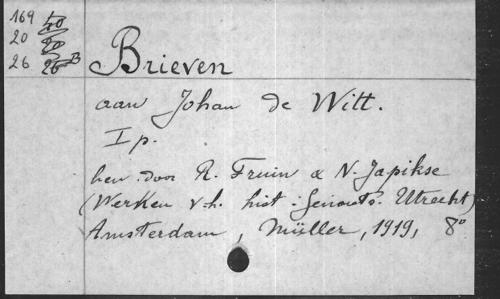 169 40
20 20
26 26 B
Brieven
aan Johan de Witt.
I p.
bew. door R. Fruin & N. Japikse
(Werken v. h. hist. Genoots. Utrecht)
Amsterdam, Müller, 1919, 8°